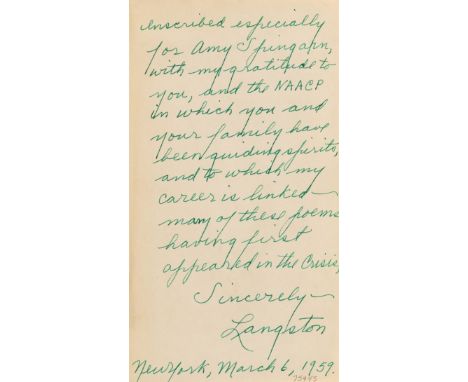 Inscribed especially
for Amy Spingarn,
with my gratitude to
you, and the NAACP
in which you and
your family have
been guiding spirits,
and to which my
career is linked—
many of these poems
having first
appeared in the Crisis,
Sincerely—
Langston
New York, March 6, 1959.